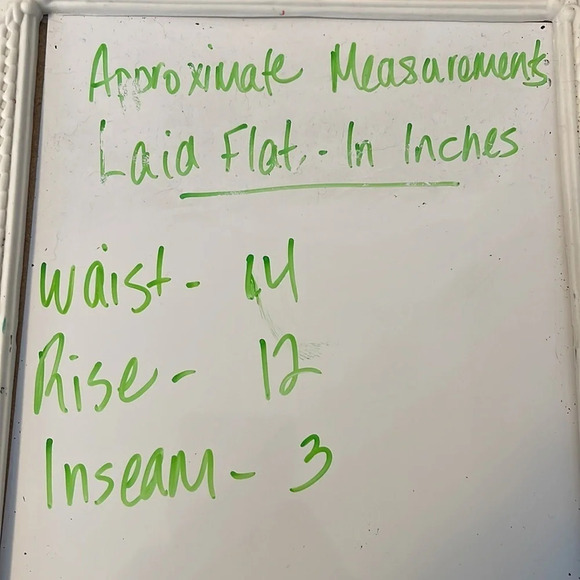 Approximate Measurements
Laid Flat - In Inches
Waist - 14
Rise - 12
Inseam - 3